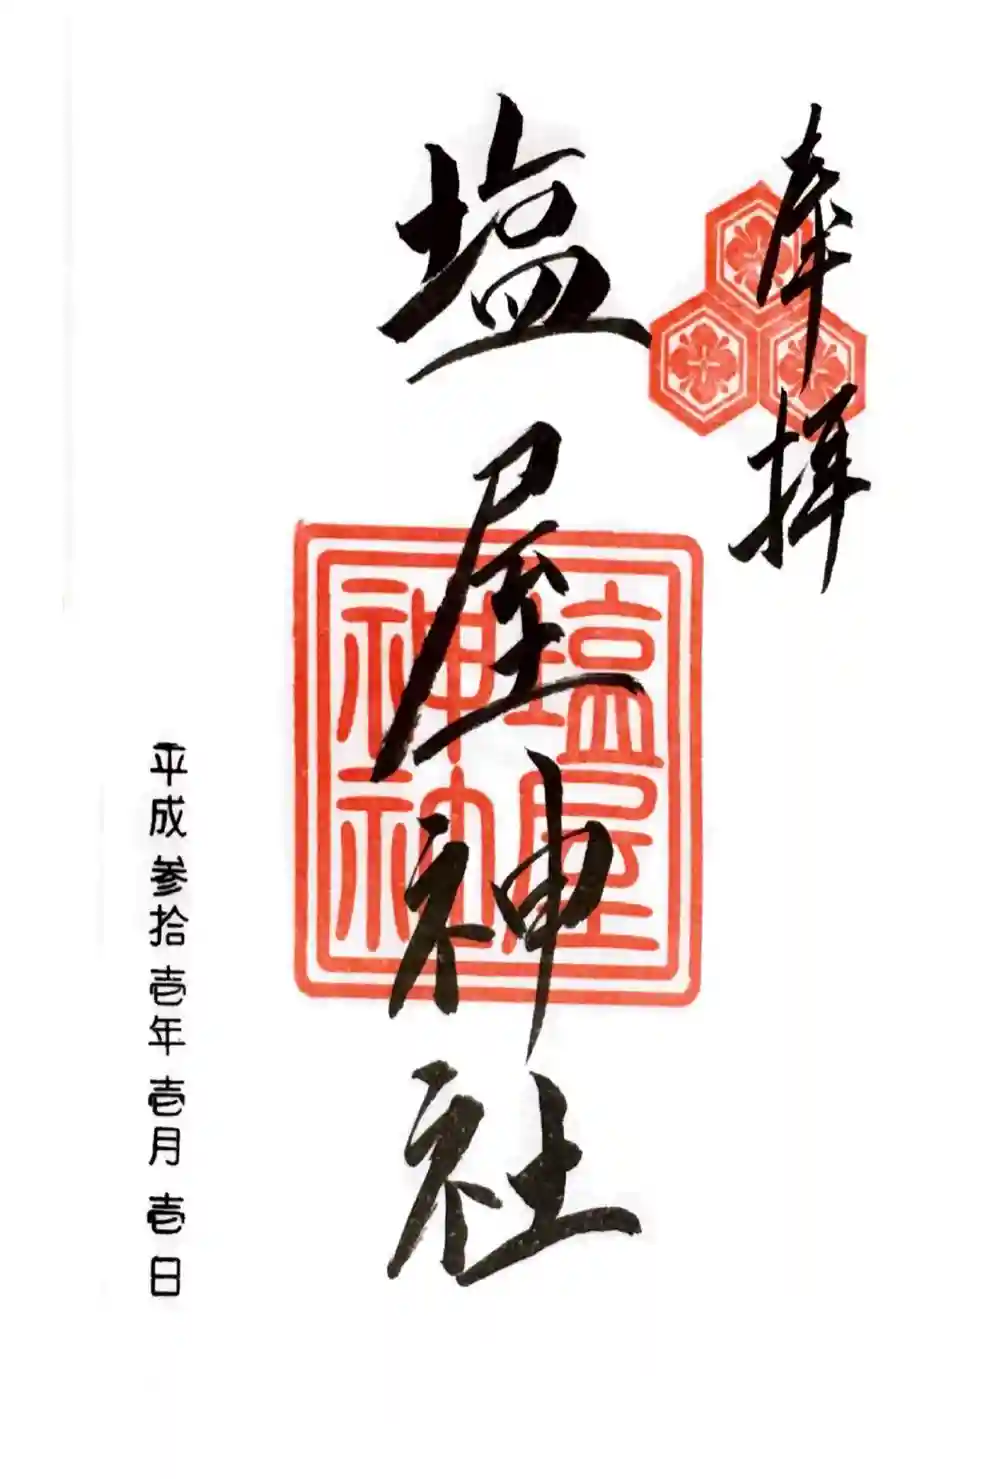 奉拝
塩屋神社
塩屋
神社
平成参拾壱年壱月壱日